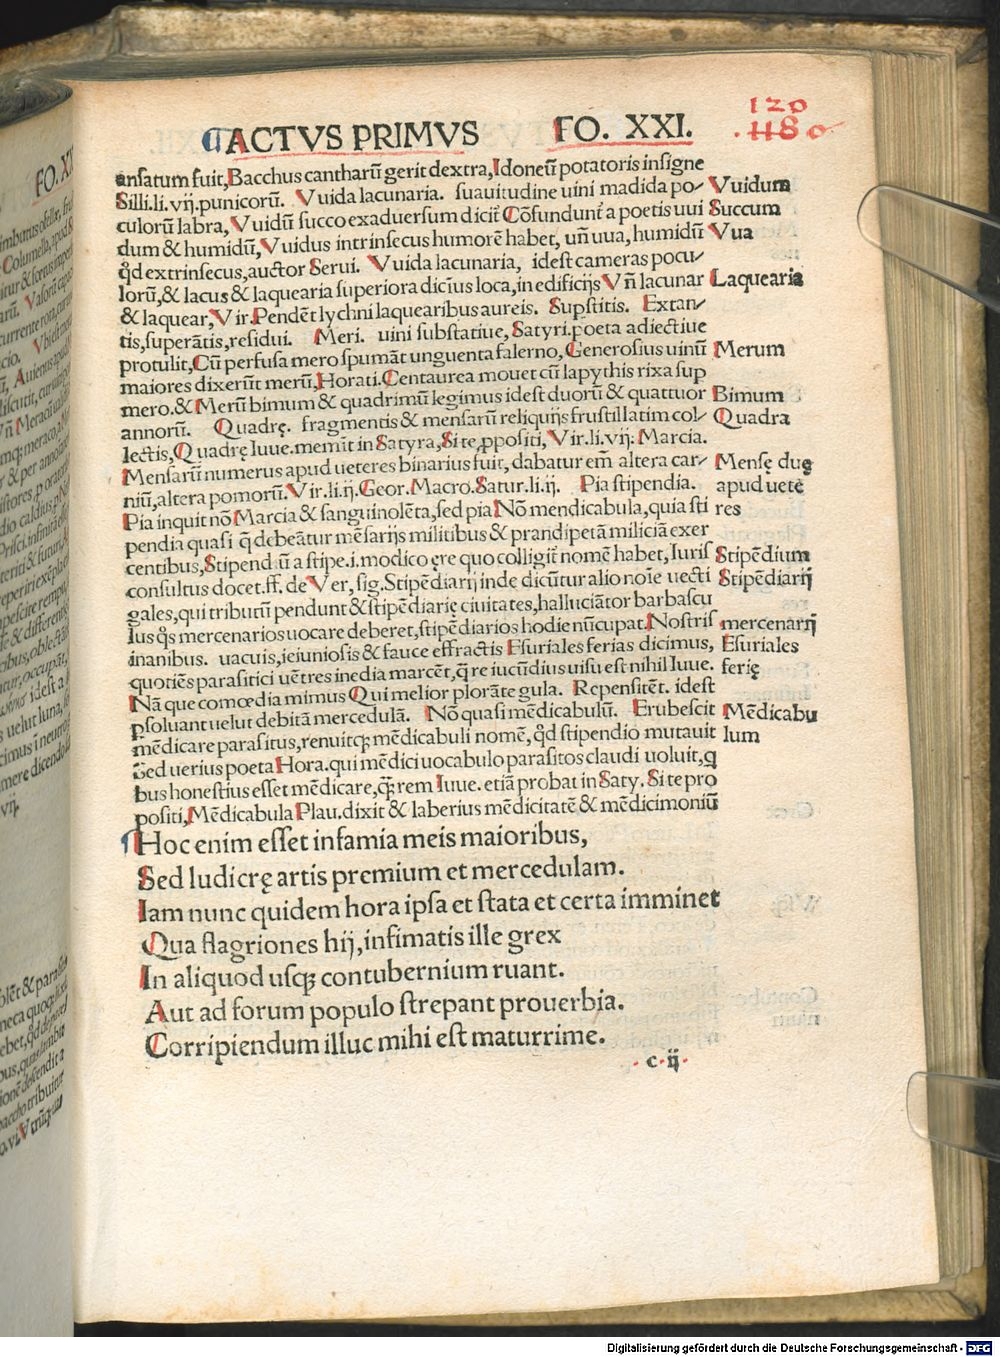 120
.118 0.
ACTVS PRIMVS FO. XXI.
ansatum fuit, Bacchus cantharũ gerit dextra, Idoneũ potatoris insigne
Silli.li.vij.punicorũ. Vuida lacunaria. suauitudine uini madida po/ Vuidum
culorũ labra, Vuidũ succo exaduersum dicit̃ Cõfundunt̃ a poetis uui Succum
dum & humidũ, Vuidus intrinsecus humorẽ habet, uñ uua, humidũ Vua
q̃d extrinsecus, auctor Serui. Vuida lacunaria, idest cameras pocu/
lorũ, & lacus & laquearia superiora dicim̃us loca, in edificijs Vñ lacunar Laquearia
& laquear, Vir. Pendẽt lychni laquearibus aureis. Supstitis. Extan/
tis, superãtis, residui. Meri. uini substatiue, Satyri.poeta adiectiue
protulit, Cũ perfusa mero spumãt unguenta falerno, Generosius uinũ Merum
maiores dixerũt merũ, Horati. Centaurea mouet cũ lapythis rixa sup
mero.& Merũ bimum & quadrimũ legimus idest duorũ & quattuor Bimum
annorũ. Quadrę. fragmentis & mensarũ reliquijs frustillatim col/ Quadra
lectis, Quadrę Iuue. memĩt in Satyra, Si te ꝓpositi, Vir.li.vij. Marcia.
Mensarũ numerus apud ueteres binarius fuit, dabatur em̃ altera car/ Mensę duę
niũ, altera pomorũ. Vir.li.ij. Geor. Macro. Satur.li.ij. Pia stipendia. apud uetẽ
Pia inquit nõ Marcia & sanguinolẽta, sed pia Nõ mendicabula, quia sti res
pendia quasi q̃ debeãtur mẽsarijs militibus & prandipetã miliciã exer
centibus, Stipendiũ a stipe.i.modico ęre quo colligit̃ nomẽ habet, Iuris Stipẽdium
consultus docet.ff. de Ver, sig. Stipẽdiarij inde dicũtur alio noĩe uecti Stipẽdiarij
gales, qui tributũ pendunt & stipẽdiarię ciuitates, halluciãtor barbascu
lus q̃s mercenarios uocare deberet, stipẽdiarios hodie nũcupat. Nostris mercenarij
inanibus. uacuis, ieiuniosis & fauce effractis Esuriales ferias dicimus, Esuriales
quotiẽs parasitici uẽtres inedia marcẽt, q̃ re iucũdius uisu est nihil Iuue. ferię
Nã que comœdia mimus Qui melior plorãte gula. Repensitẽt. idest
ꝑsoluant uelut debitã mercedulã. Nõ quasi mẽdicabulũ. Erubescit Mẽdicabu
mẽdicare parasitus, renuitqꝫ mẽdicabuli nomẽ, q̃d stipendio mutauit lum
Sed uerius poeta Hora. qui mẽdici uocabulo parasitos claudi uoluit, q
bus honestius esset mẽdicare, q̃ꝫ rem Iuue. etiã probat in Saty. Si te pro
positi, Mẽdicabula Plau. dixit & laberius mẽdicitatẽ & mẽdicimoniũ
Hoc enim esset infamia meis maioribus,
Sed ludicrę artis premium et mercedulam.
Iam nunc quidem hora ipsa et stata et certa imminet
Qua flagriones hij, infimatis ille grex
In aliquod usqꝫ contubernium ruant.
Aut ad forum populo strepant prouerbia.
Corripiendum illuc mihi est maturrime.
c ij
Digitalisierung gefördert durch die Deutsche Forschungsgemeinschaft - DFG